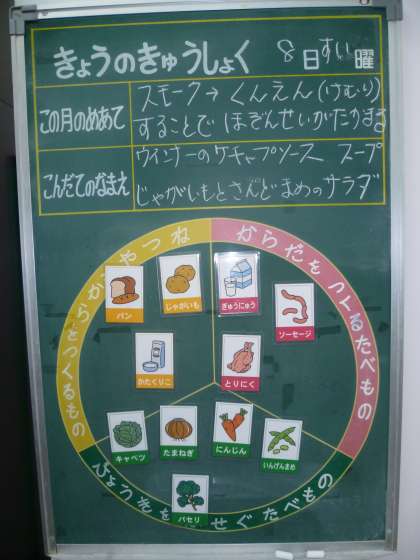 きょうのきゅうしょく 8日すい曜
この月のめあて
スモーク→くんえん(けむり)
することで ほぞんせいがたかまる
こんだてのなまえ
ウインナーのケチャプソース スープ
じゃがいもとさんどまめのサラダ
ちからやねつをつくるもの
からだをつくるたべもの
パン
じゃがいも
ぎゅうにゅう
ソーセージ
かたくりこ
とりにく
キャベツ
たまねぎ
にんじん
いんげんまめ
パセリ
びょうきをふせぐたべもの